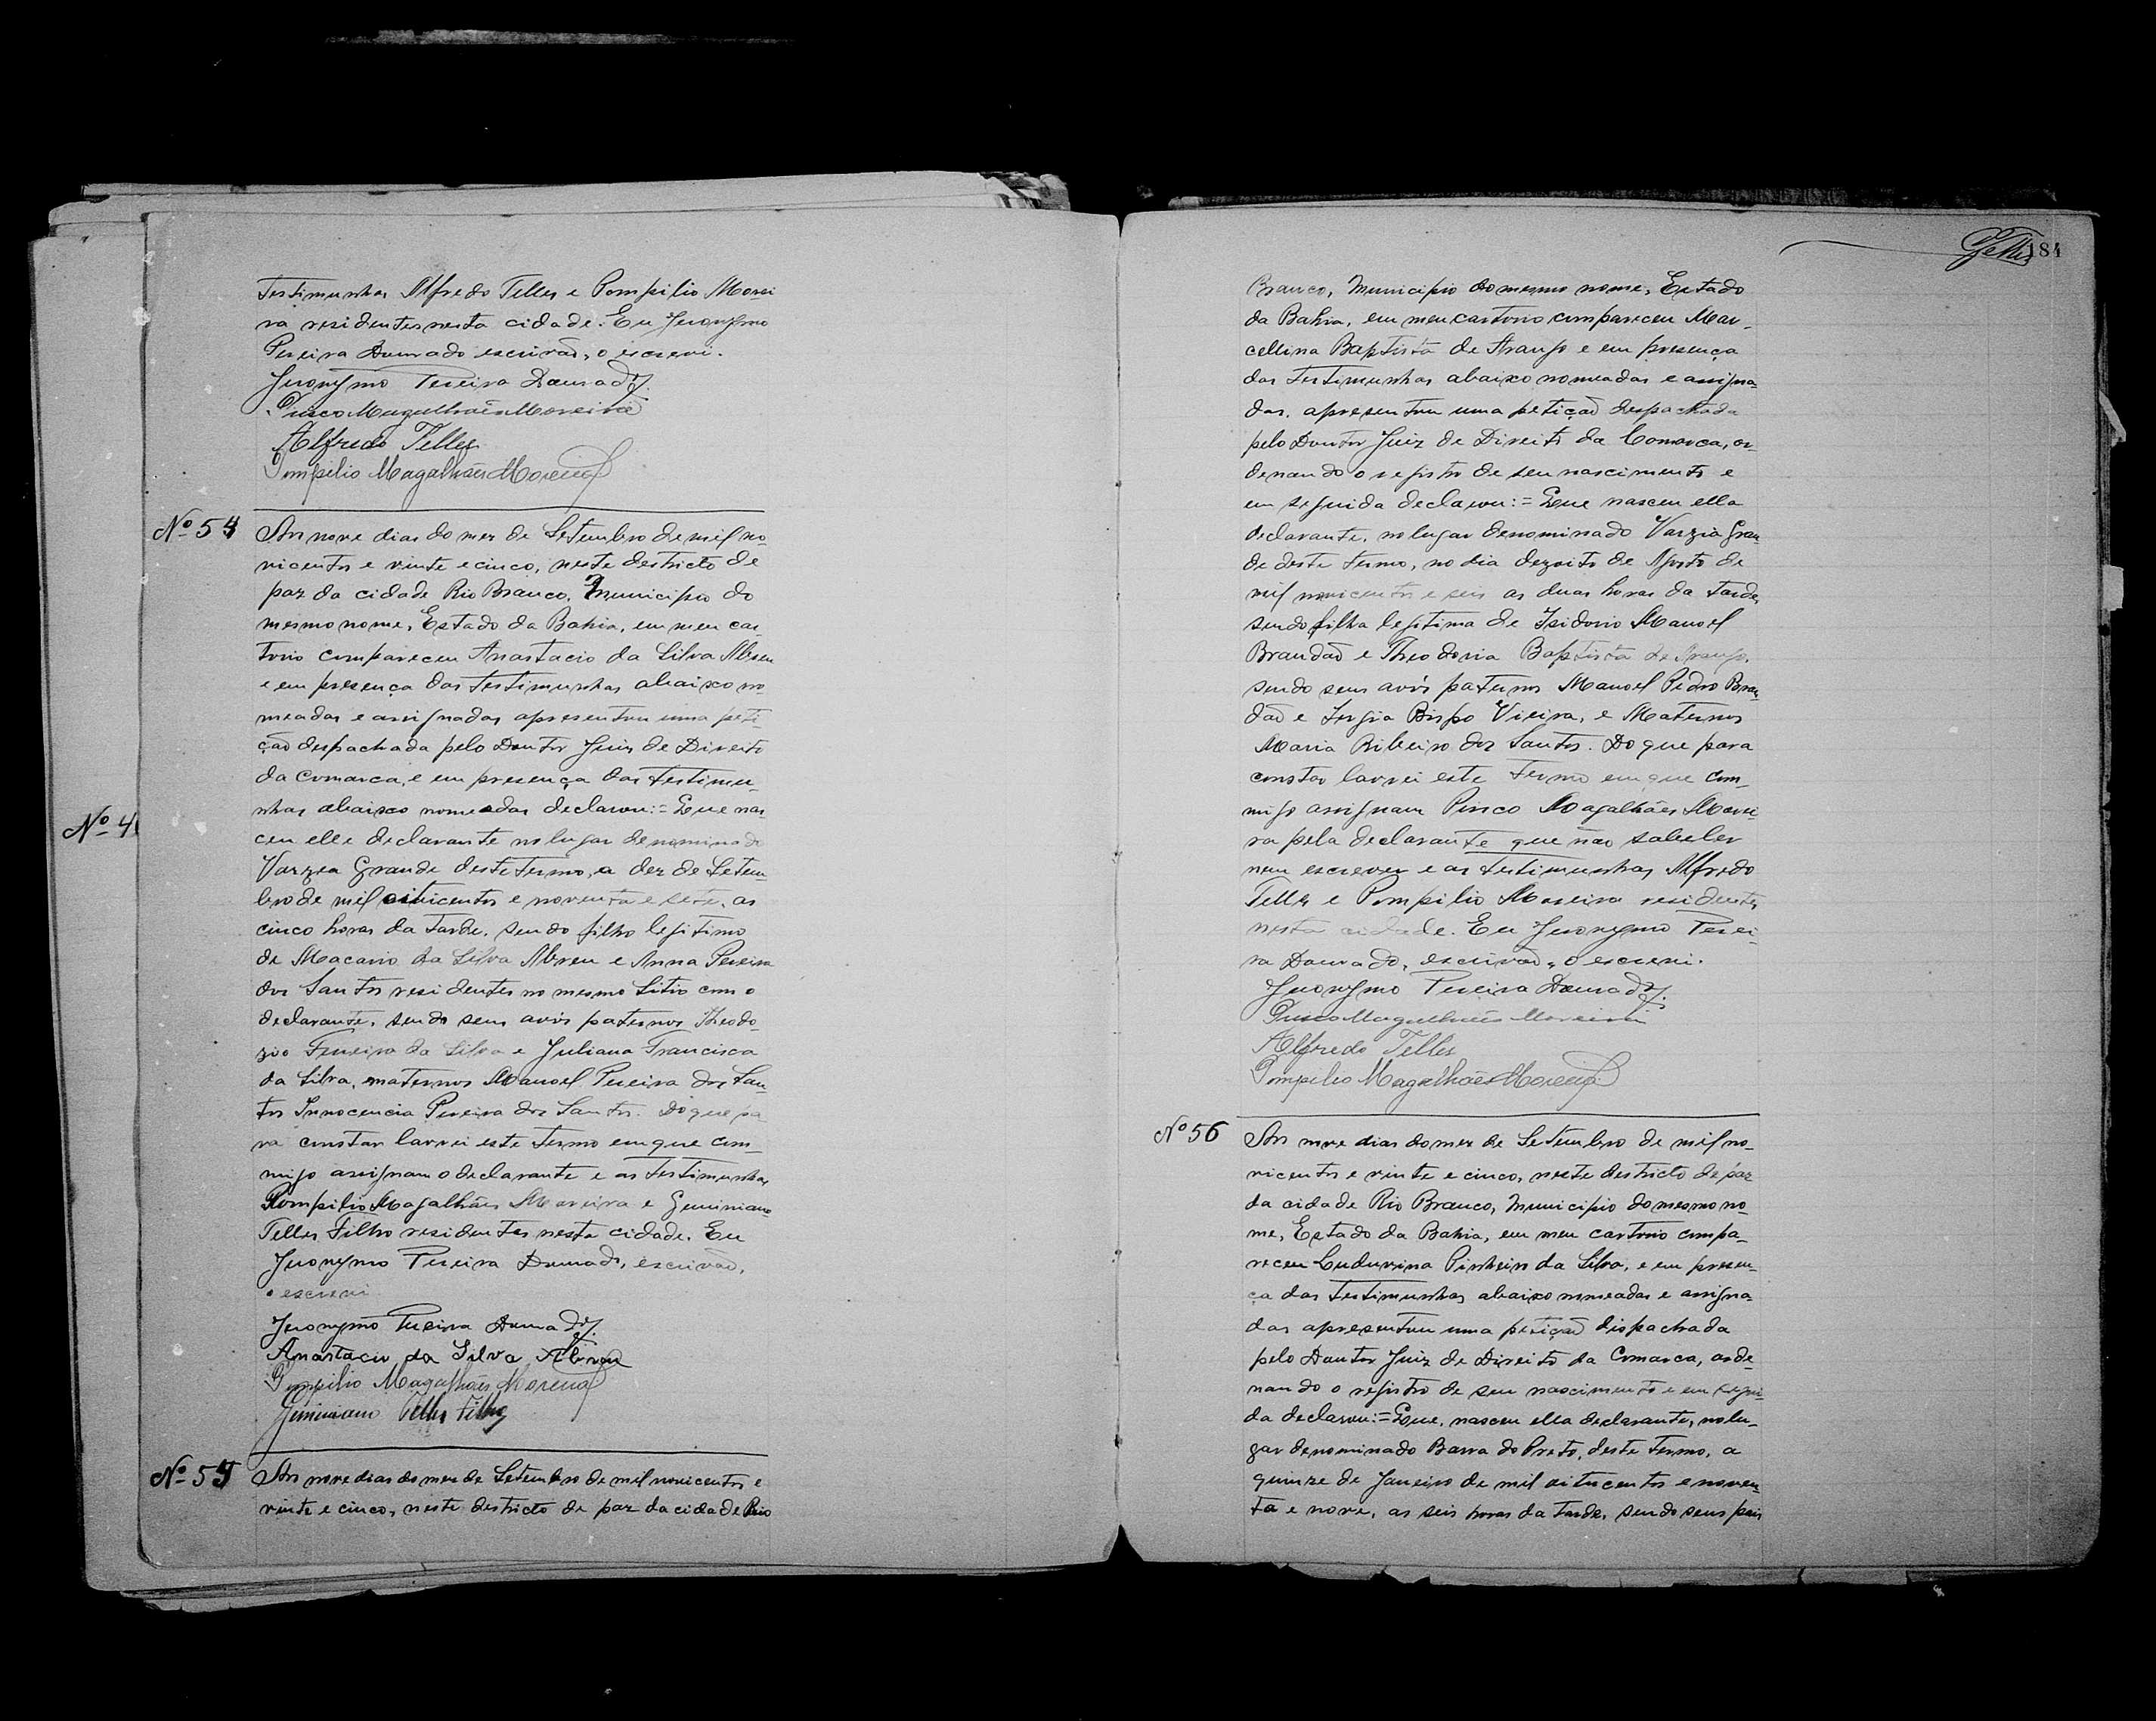 Testimunhas Alfredo Telles e Pompilio Morei
ra residentes nesta cidade. Eu Jeronymo
Pereira Dourado escrivaõ, o escrevi.
Jeronymo Pereira Dourado.
Prisco Magalhães Moreira
Alfredo Telles
Pompilio Magalhães Moreira
Nº 54
Aos nove dias do mez de Setembro de mil no-
vicentos e vinte e cinco, neste destricto de
paz da cidade Rio Branco, Municipio do
mesmo nome, Estado da Bahia, em meu car-
torio compareceu Anastacio da Silva Abreu
e em presença das testimunhas abaixo no-
meadas e assignadas apresentou uma peti
çaõ despachada pelo Doutor Juiz de Direito
da Comarca, e em presença das testimu-
nhas abaixo nomeadas declarou:= Que nas-
ceu elle declarante no lugar denominado
Nº 4
Varzea Grande deste termo, a dez de Setem-
bro de mil oiticentos e noventa e sete, as
cinco horas da tarde, sendo filho legitimo
de Macario da Silva Abreu e Anna Pereira
dos Santos residentes no mesmo Sitio com o
declarante, sendo seus avós paternos Theodo-
zio Ferreira da Silva e Juliana Francisca
da Silva, maternos Manoel Pereira dos San-
tos Innocencia Pereira dos Santos. Do que pa
ra constar lavrei este termo em que com-
migo assignam o declarante e as testimunhas
Pompilio Magalhães Moreira e Geminiano
Telles Filho residentes nesta cidade. Eu
Jeronymo Pereira Dourado, escrivaõ,
o escrevi
Jeronymo Pereira Dourado.
Anastacio da Silva Abreu
Pompilio Magalhães Moreira
Geminiano Telles Filho
Nº 55
Aos nove dias do mez de Setembro de mil novicentos e
vinte e cinco, neste destricto de paz da cidade Rio
Telles 184
Branco, Municipio do mesmo nome, Estado
da Bahia, em meu cartorio compareceu Mar-
cellina Baptista de Araujo e em presença
das testimunhas abaixo nomeadas e assigna-
das, apresentou uma petiçaõ despachada
pelo Doutor Juiz de Direito da Comarca, or-
denando o registro de seu nascimento e
em seguida declarou:= Que nasceu ella
declarante, no lugar denominado Varzia Gran-
de deste termo, no dia dezoito de Agosto de
mil novicentos e seis as duas horas da tarde,
sendo filha legitima de Isidorio Manoel
Brandaõ e Theodoria Baptista de Araujo,
sendo seus avós paternos Manoel Pedro Bran-
daõ e Sergia Bispo Vieira, e Maternos
Maria Ribeiro dos Santos. Do que para
constar lavrei este termo em que com-
migo assignam Prisco Magalhães Morei
ra pela declarante que não sabe ler
nem escrever e as testimunhas Alfredo
Telles e Pompilio Moreira residentes
nesta cidade. Eu Jeronymo Perei-
ra Dourado, escrivaõ, o escrevi.
Jeronymo Pereira Dourado.
Prisco Magalhães Moreira
Alfredo Telles
Pompilio Magalhães Moreira
Nº 56
Aos nove dias do mez de Setembro de mil no-
vicentos e vinte e cinco, neste destricto de paz
da cidade Rio Branco, Municipio do mesmo no-
me, Estado da Bahia, em meu cartorio compa-
receu Luduvina Pinheiro da Silva, e em presen-
ça das testimunhas abaixo nomeadas e assigna-
das apresentou uma petiçaõ dispachada
pelo Doutor Juiz de Direito da Comarca, orde-
nando o registro de seu nascimento e em segui-
da declarou:= Que, nasceu ella declarante, no lu-
gar denominado Barra do Preto, deste termo, a
quinze de Janeiro de mil oitocentos e noven-
ta e nove, as seis horas da tarde, sendo seus pais